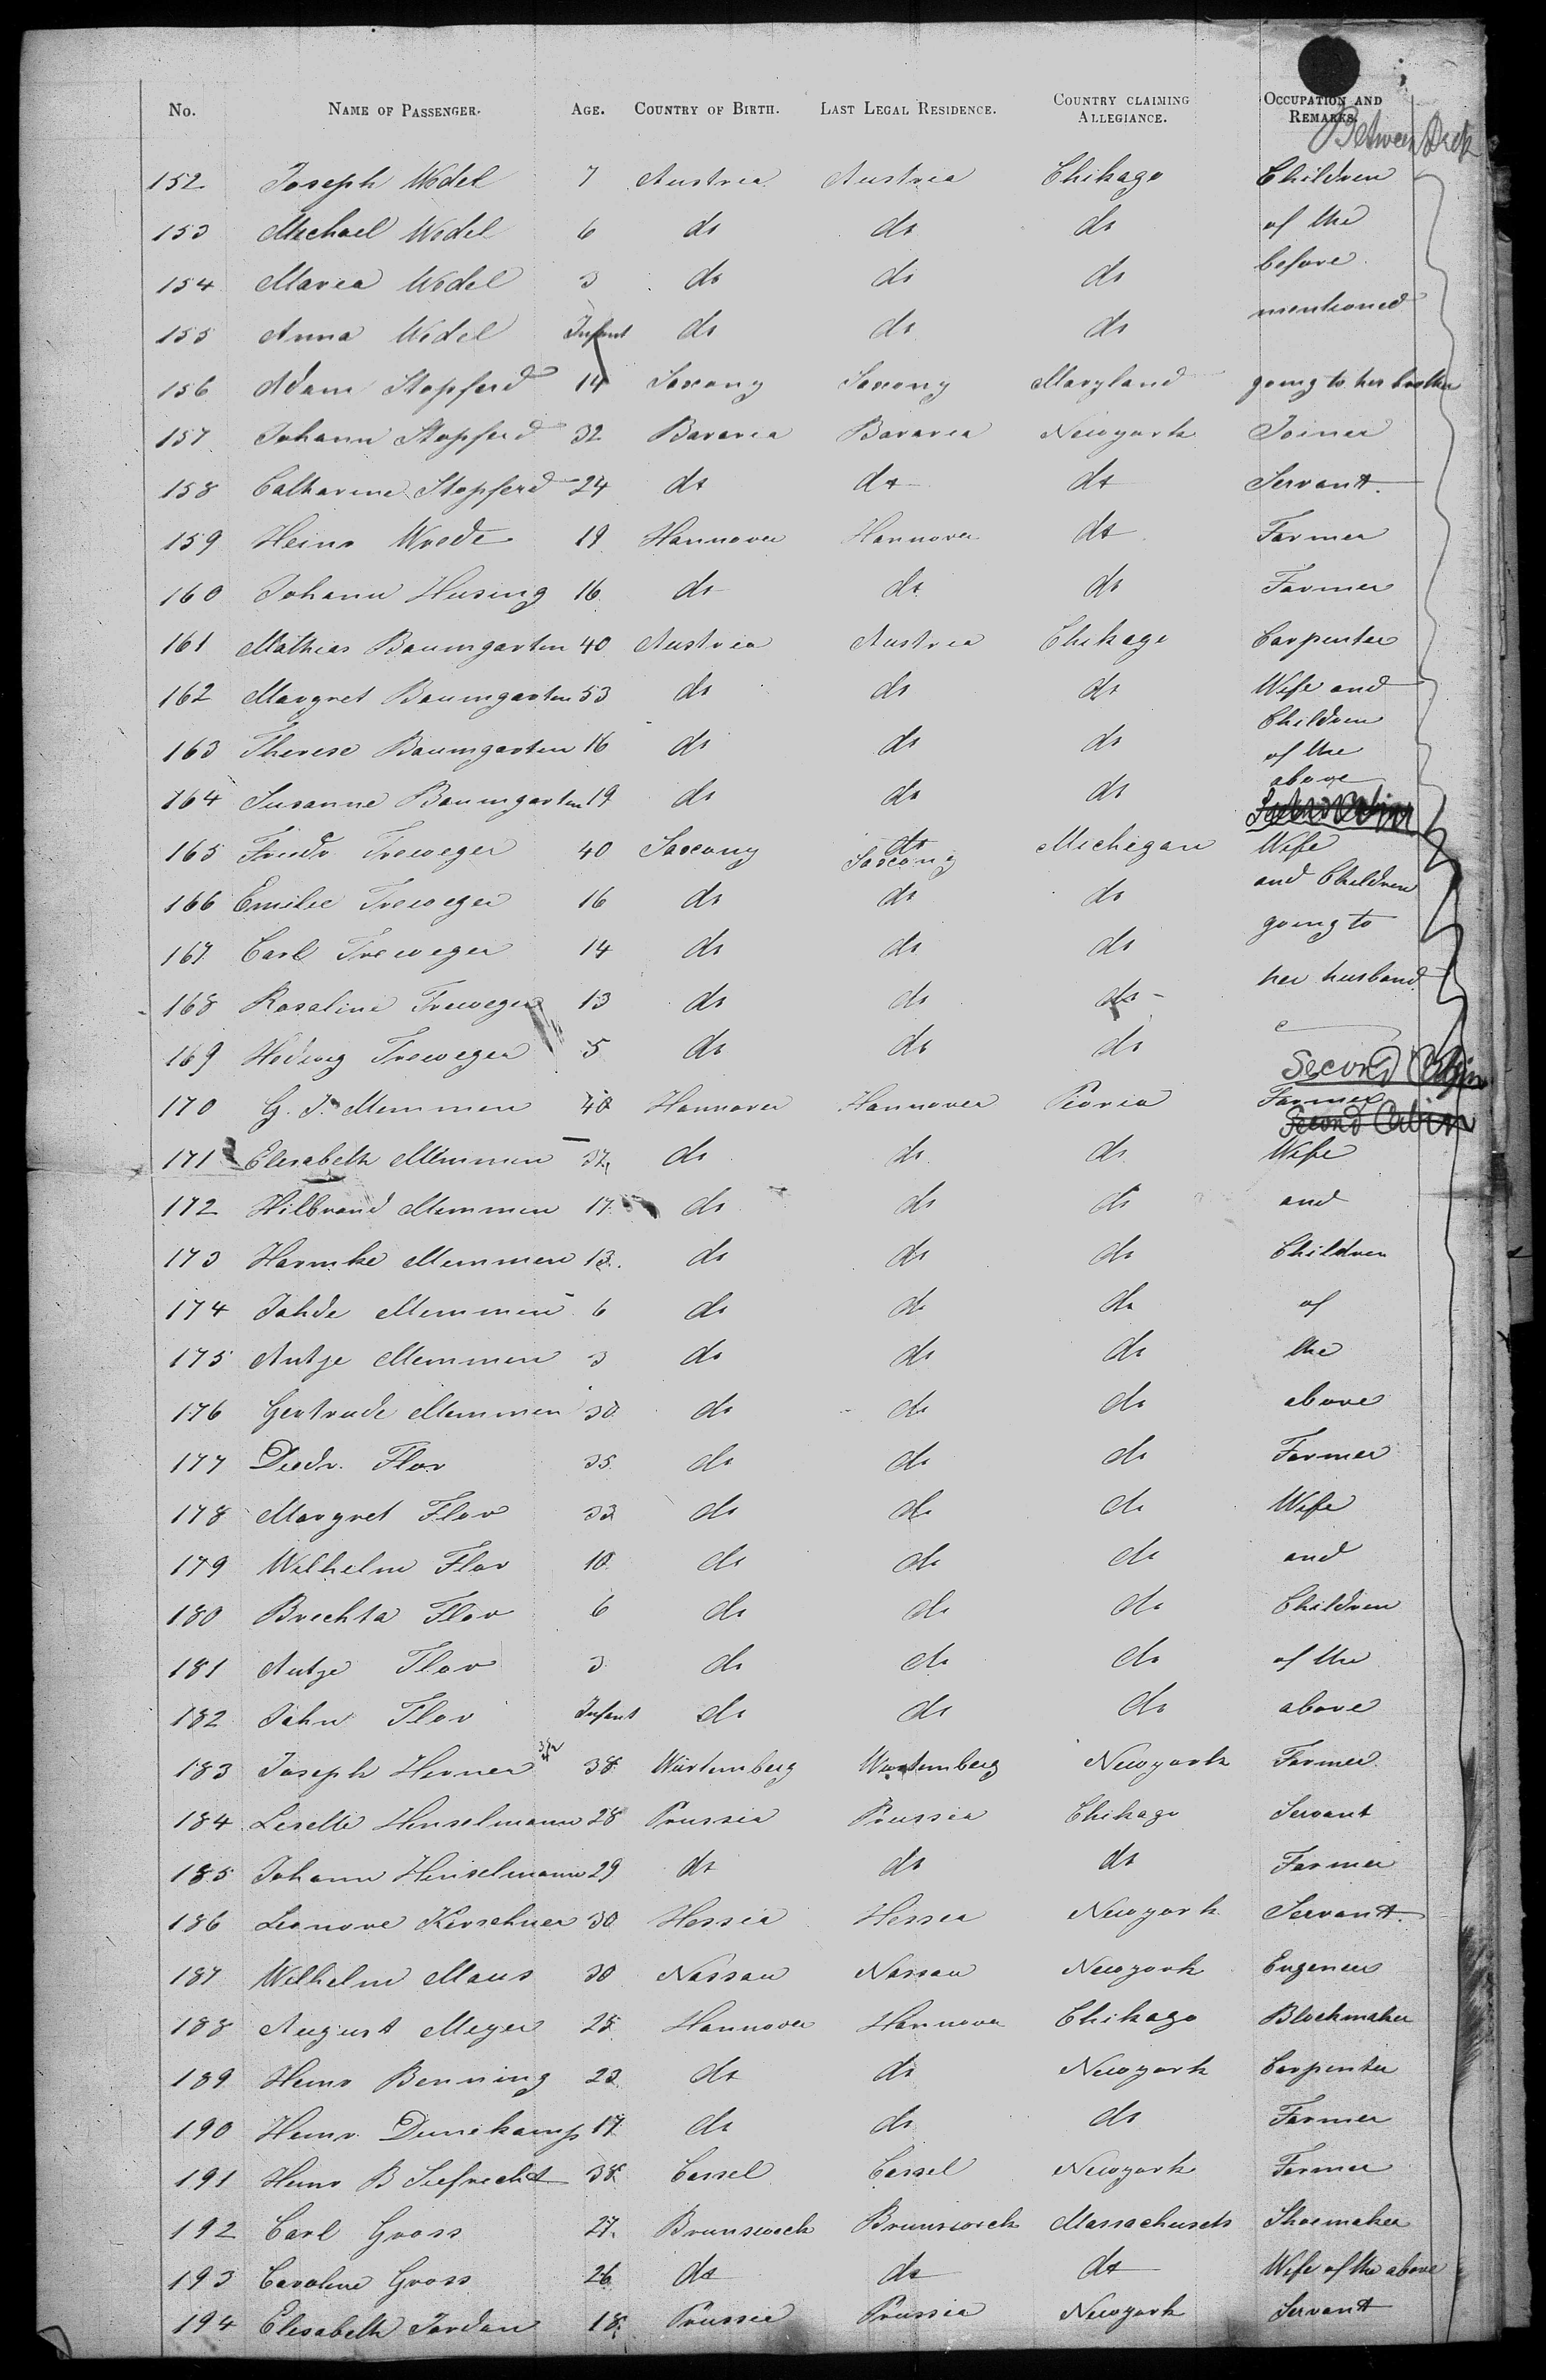 No. NAME OF PASSENGER. AGE. COUNTRY OF BIRTH. LAST LEGAL RESIDENCE. COUNTRY CLAIMING ALLEGIANCE. OCCUPATION AND REMARKS.
Between Deck
152 Joseph Wodel 7 Austria Austria Chikago Children
153 Michael Wodel 6 do do do of the
154 Maria Wodel 3 do do do before
155 Anna Wodel Infant do do do mentioned
156 Adam Stopferd 14 Saxony Saxony Maryland going to her brother
157 Johann Stopferd 32 Bavaria Bavaria Newyork Joiner
158 Catharine Stopferd 24 do do do Servant
159 Heinr Wrede 19 Hannover Hannover do Farmer
160 Johann Husing 16 do do do Farmer
161 Mathias Baumgarten 40 Austria Austria Chikago Carpenter
162 Margret Baumgarten 53 do do do Wife and
163 Therese Baumgarten 16 do do do Children of the
164 Susanne Baumgarten 19 do do do above
165 Friedr Treweger 40 Saxony do Saxony Michigan Wife
166 Emilie Treweger 16 do do do and Children
167 Carl Treweger 14 do do do going to
168 Rosaline Treweger 13 do do do her husband
169 Hedwig Treweger 5 do do do
Second Cabin
170 G. J. Memmen 40 Hannover Hannover Peoria Farmer
Second Cabin
171 Elisabeth Memmen 32 do do do Wife
172 Hilbrand Memmen 17 do do do and
173 Harmke Memmen 13 do do do Children
174 Jahde Memmen 6 do do do of
175 Antje Memmen 3 do do do the
176 Gertrude Memmen 30 do do do above
177 Diedr. Flor 35 do do do Farmer
178 Margret Flor 33 do do do Wife
179 Wilhelm Flor 10 do do do and
180 Brechta Flor 6 do do do Children
181 Antje Flor 3 do do do of the
182 John Flor Infant do do do above
183 Joseph Herner 38 Würtemberg Würtemberg Newyork Farmer
184 Lisette Henselmann 28 Prussia Prussia Chikago Servant
185 Johann Henselmann 29 do do do Farmer
186 Leonore Kirschner 30 Hessia Hessia Newyork Servant
187 Wilhelm Maus 30 Nassau Nassau Newyork Engeneer
188 August Meyer 25 Hannover Hannover Chikago Blockmaker
189 Heinr Benning 23 do do Newyork Carpenter
190 Heinr. Dunekamp 17 do do do Farmer
191 Heinr B Siefrecht 38 Cassel Cassel Newyork Farmer
192 Carl Gross 27 Brunswick Brunswick Massachusets Shoemaker
193 Caroline Gross 26 do do do Wife of the above
194 Elisabeth Jordan 18 Prussia Prussia Newyork Servant